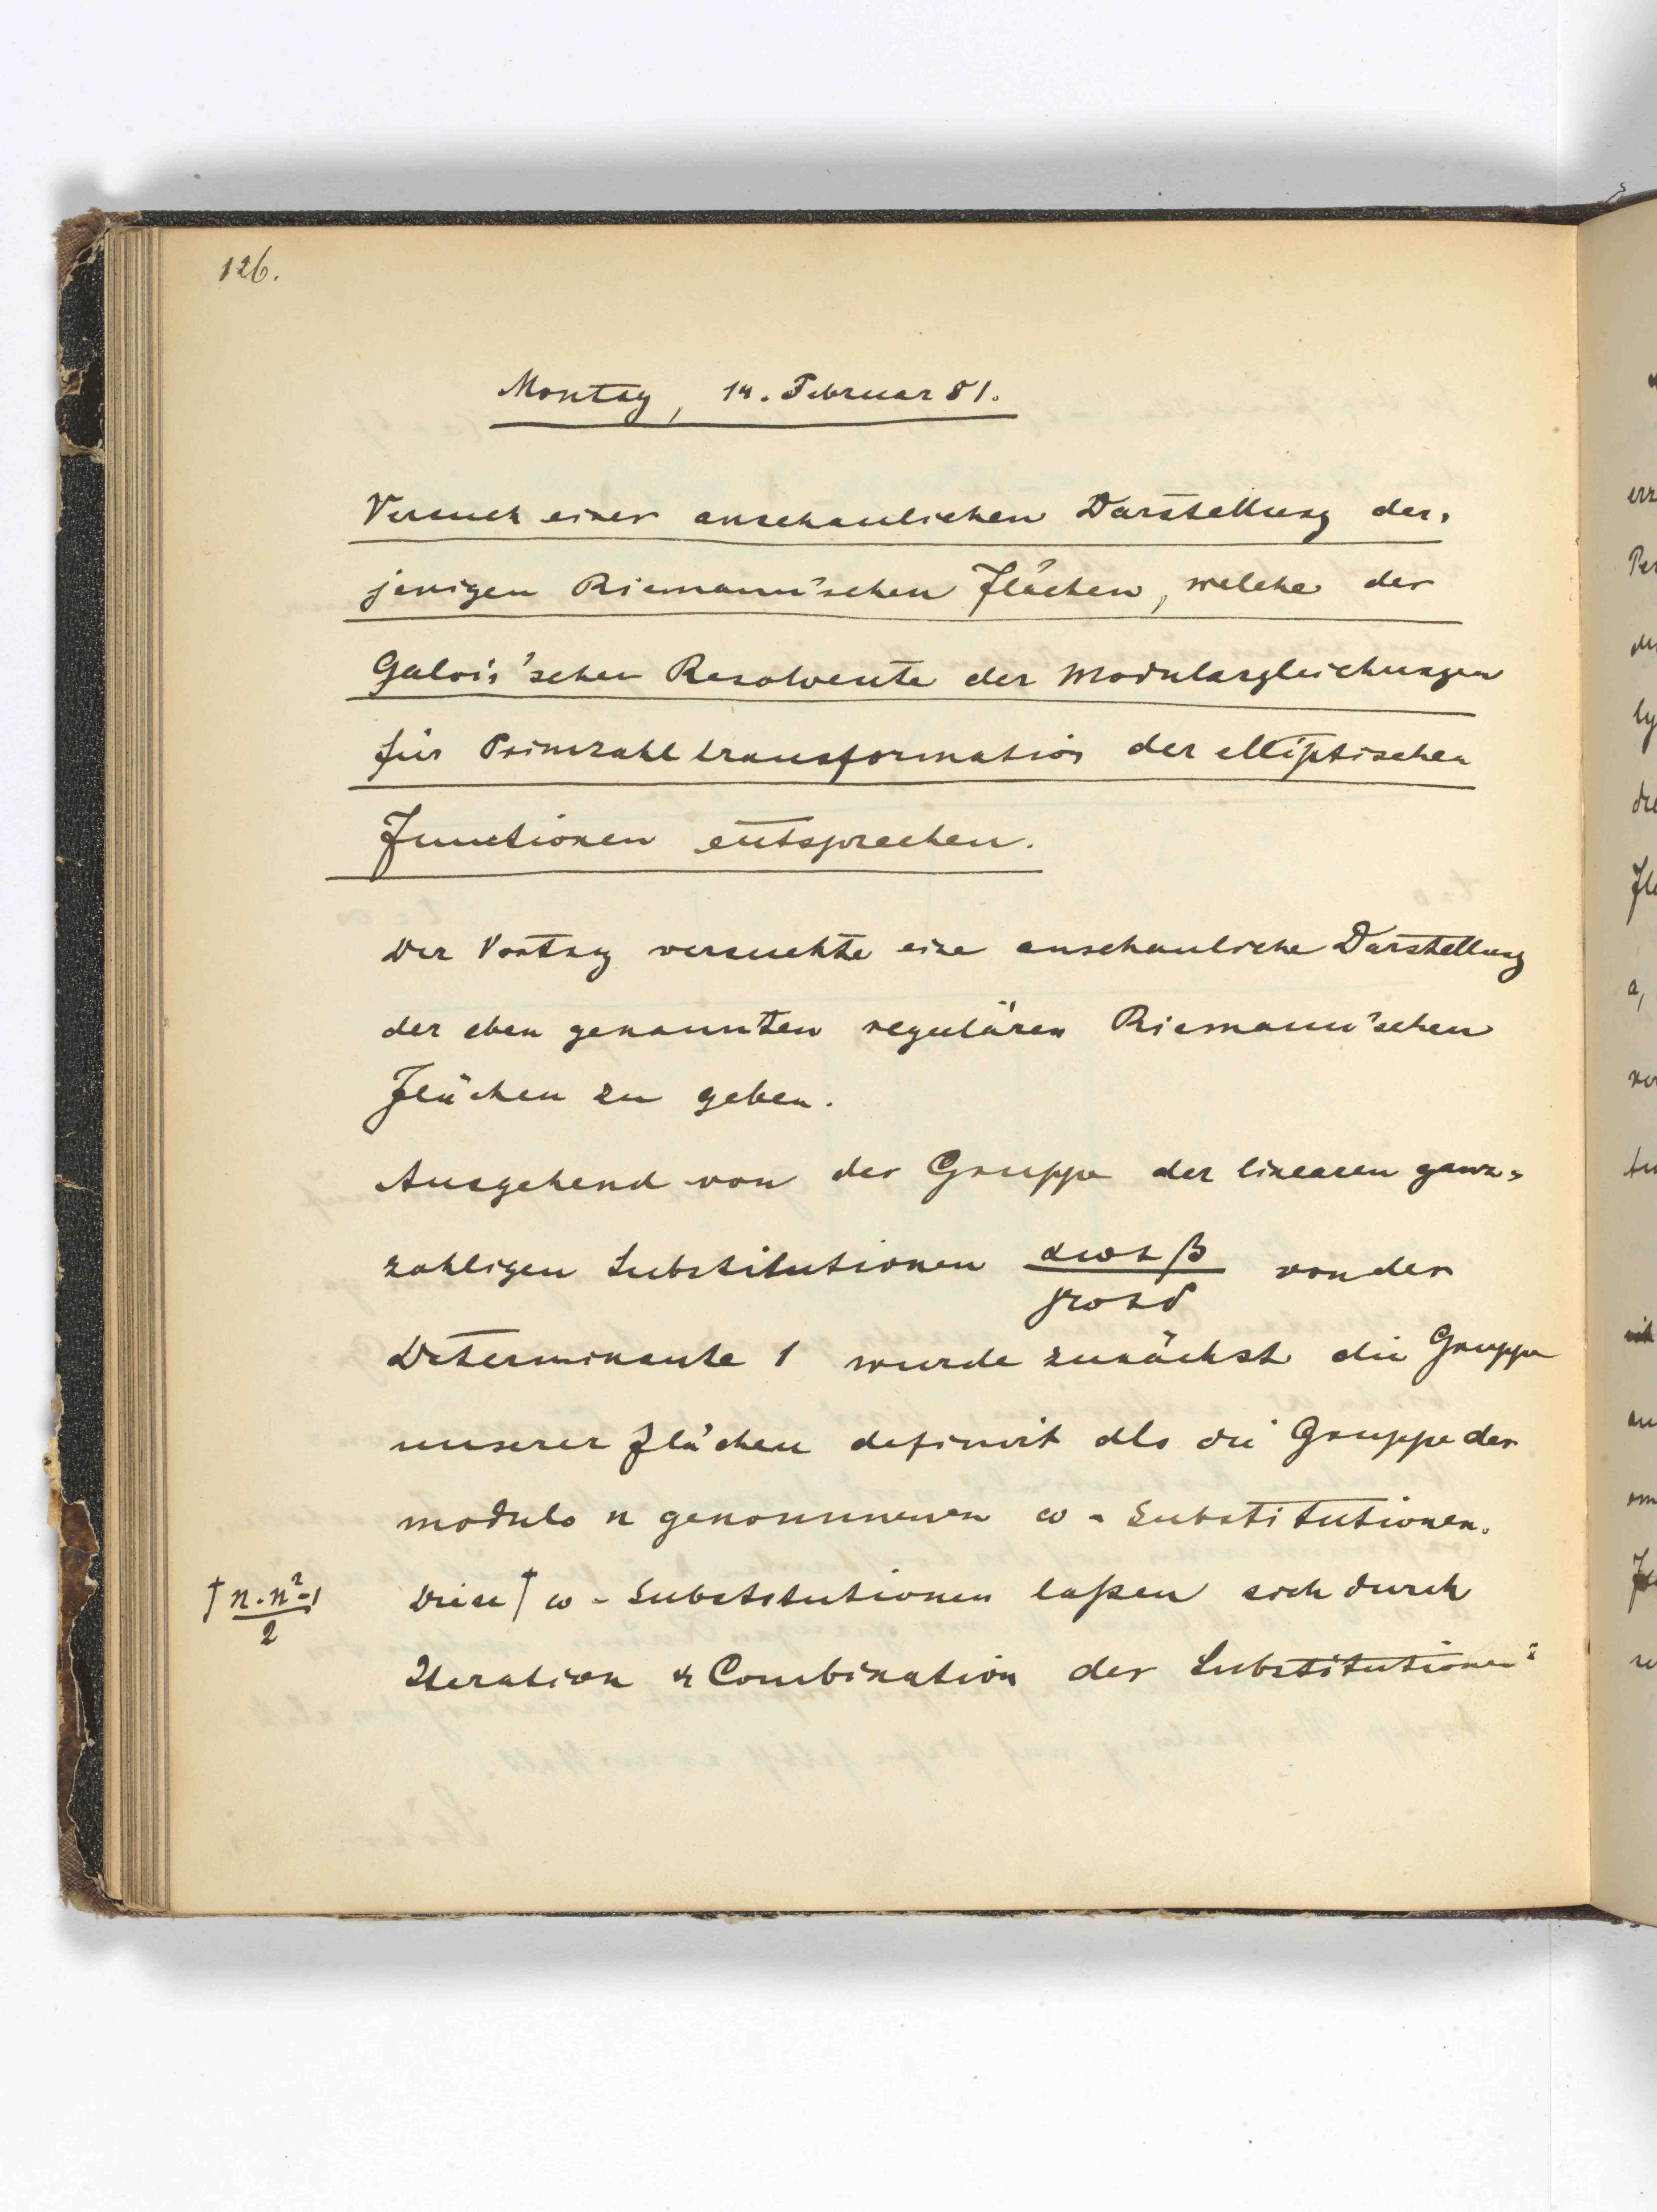 126.
Montag, 14. Februar 81.
Versuch einer anschaulichen Darstellung der-
jenigen Riemann'schen Flächen, welche der
Galois'schen Resolvente der Modulargleichungen
für Primzahltransformation der elliptischen
Functionen entsprechen.
Der Vortrag versuchte eine anschauliche Darstellung
der eben genannten regulären Riemann'schen
Flächen zu geben.
Ausgehend von der Gruppe der linearen ganz=
zahligen Substitutionen αω+β / γω+δ von der
Determinante 1 wurde zunächst die Gruppe
unserer Flächen definirt als die Gruppe der
modulo n genommenen ω-Substitutionen.
† n·n²-1 / 2
Diese † ω-Substitutionen laßen sich durch
Iteration & Combination der Substitutionen: